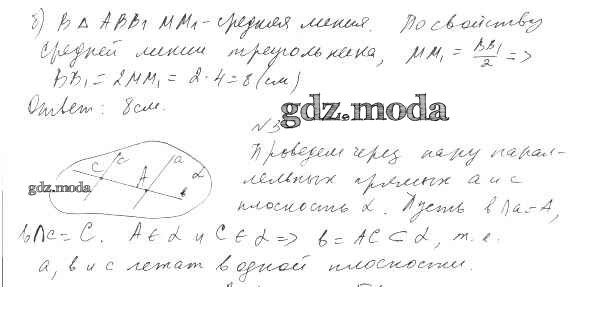 б) В Δ ABB₁ MM₁ - средняя линия. По свойству
средней линии треугольника, MM₁ = BB₁/2 =>
BB₁ = 2MM₁ = 2·4 = 8 (см)
Ответ: 8 см.
gdz.moda
№3
Проведем через пару парал-
лельных прямых а и с
плоскость α. Пусть b∩a = A,
b∩c = C. A ∈ α и C ∈ α => b = AC ⊂ α, т.е.
a, b и c лежат в одной плоскости.
C c A a α b
gdz.moda